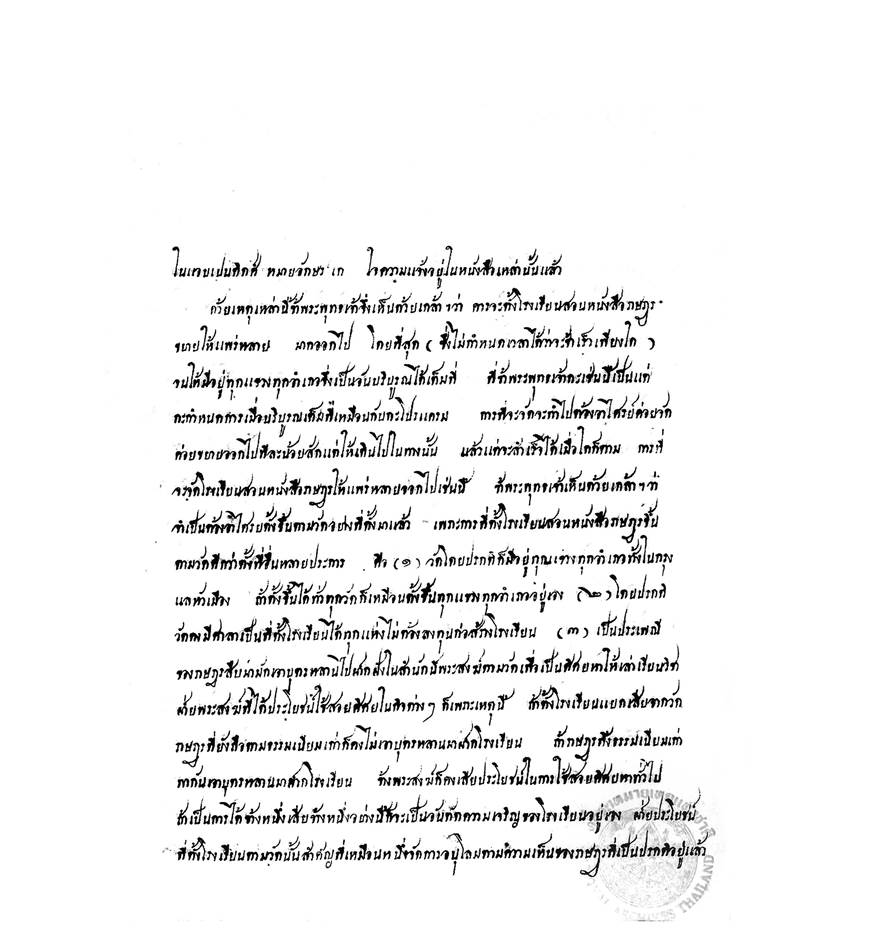 ในแอบเปนดิกส์ หมายอักษร เก ใจความแจ้งอยู่ในหนังสือเหล่านั้นแล้ว
ด้วยเหตุเหล่านี้ข้าพระพุทธเจ้าจึ่งเห็นด้วยเกล้าฯ ว่า การจะตั้งโรงเรียนสอนหนังสือราษฎร
ขยายให้แพร่หลาย มากออกไป โดยที่สุด ( ซึ่งไม่กำหนดเวลาได้ว่าจะสำเร็จเพียงใด )
จนได้มีอยู่ทุกแขวงทุกอำเภอซึ่งเป็นอันบริบูรณ์ได้เต็มที่ ที่ข้าพระพุทธเจ้าคะเช่นนี้เป็นแต่
คะกำหนดการเมื่อบริบูรณเต็มที่เหมือนกับคะโปรแกรม การที่จะจัดจะทำไปต้องอาไศรย์ค่อยจัด
ค่อยขยายออกไปทีละน้อยสักแต่ให้เดินไปในทางนั้น แล้วแต่จะสำเร็จได้เมื่อใดก็ตาม การที่
จะจัดโรงเรียนสอนหนังสือราษฎรให้แพร่หลายออกไปเช่นนี้ ข้าพระพุทธเจ้าเห็นด้วยเกล้าฯ ว่า
จำเป็นต้องอาไศรยตั้งขึ้นตามวัดอย่างที่ตั้งมาแล้ว เพราะการที่ตั้งโรงเรียนสอนหนังสือราษฎรขึ้น
ตามวัดดีกว่าตั้งที่อื่นหลายประการ คือ (๑) วัดโดยปรกติก็มีอยู่ทุกแขวงทุกอำเภอทั้งในกรุง
แลหัวเมือง ถ้าตั้งขึ้นได้ทั่วทุกวัดก็เหมือนตั้งขึ้นทุกแขวงทุกอำเภออยู่เอง (๒) โดยปรกติ
วัดคงมีศาลาเป็นที่ตั้งโรงเรียนได้ทุกแห่งไม่ต้องลงทุนก่อสร้างโรงเรียน (๓) เป็นประเพณี
ของราษฎรสืบมามักเอาบุตรหลานไปฝากฝังในสำนักนี้พระสงฆ์ตามวัดเพื่อเป็นศิศยหาให้เล่าเรียนวิชา
ฝ่ายพระสงฆ์ที่ได้ประโยชน์ใช้สอยศิศย์ในกิจต่าง ๆ ก็เพราะเหตุนี้ ถ้าตั้งโรงเรียนแยกเสียจากวัด
ราษฎรที่ยังถือตามธรรมเนียมเก่าก็คงไม่เอาบุตรหลานมาฝากโรงเรียน ถ้าราษฎรทิ้งธรรมเนียมเก่า
พากันเอาบุตรหลานมาฝากโรงเรียน ข้างพระสงฆ์ก็คงเสียประโยชน์ในการใช้สอยศิศยหาทั่วไป
ถ้าเป็นการได้ข้างหนึ่งเสียข้างหนึ่งอย่างนี้ก็จะเป็นอันตัดความเจริญของโรงเรียนอยู่เอง ฝ่ายประโยชน์
ที่ตั้งโรงเรียนตามวัดนั้นสำคัญที่เหมือนหนึ่งจัดการอนุโลมตามความเห็นของราษฎรที่เป็นปรกติอยู่แล้ว
ARCHIVES THAILAND